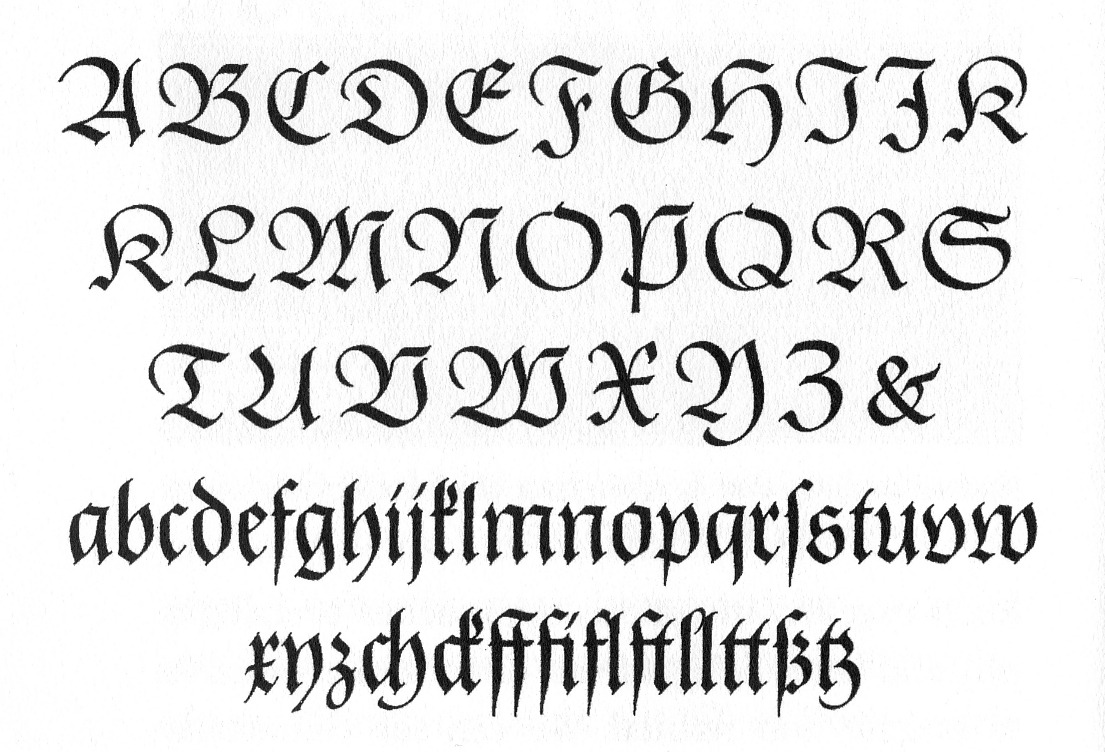 ABCDEFGHIJK
KLMNOPQRS
TUVWXYZ&
abcdefghijklmnopqrſstuvw
xyzchckfffiflftllttßtz